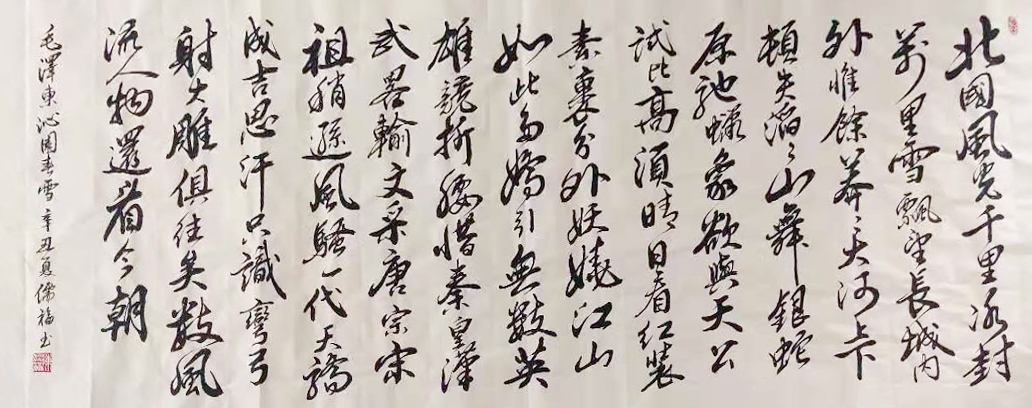 北國風光千里冰封
萬里雪飄望長城內
外惟餘莽〻大河上下
頓失滔〻山舞銀蛇
原馳蠟象欲與天公
試比高須晴日看紅裝
素裹分外妖嬈江山
如此多嬌引無數英
雄競折腰惜秦皇漢
武畧輸文采唐宗宋
祖稍遜風騷一代天驕
成吉思汗只識彎弓
射大雕俱往矣數風
流人物還看今朝
毛澤東沁園春雪 辛丑夏儒福書